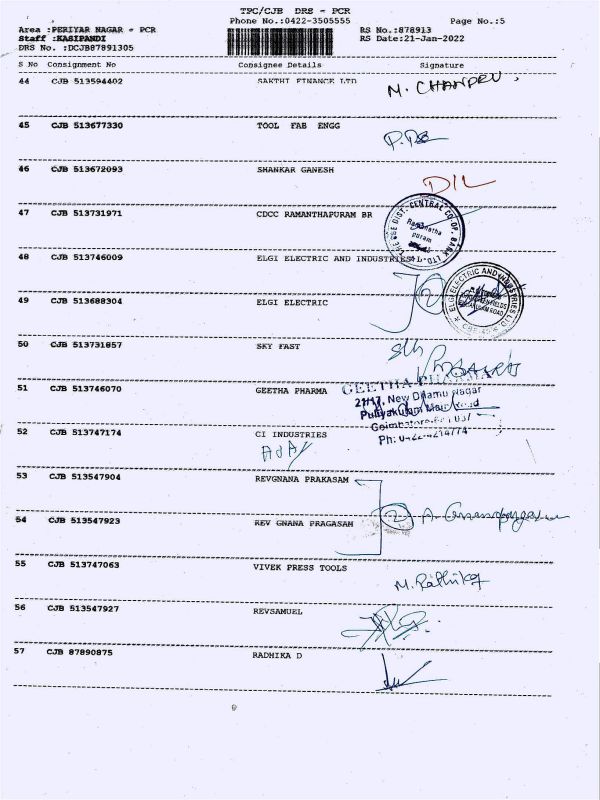 TPC/CJB DRS - PCR
Phone No.:0422-3505555 Page No.:5
Area :PERIYAR NAGAR - PCR RS No.:878913
Staff :KASIPANDI RS Date:21-Jan-2022
DRS No. :DCJB87891305
S No Consignment No Consignee Details Signature
44 CJB 513594402 SAKTHI FINANCE LTD M. CHANDRU.
45 CJB 513677330 TOOL FAB ENGG
46 CJB 513672093 SHANKAR GANESH
47 CJB 513731971 CDCC RAMANTHAPURAM BR
48 CJB 513746009 ELGI ELECTRIC AND INDUSTRIES L
49 CJB 513688304 ELGI ELECTRIC
50 CJB 513731857 SKY FAST
51 CJB 513746070 GEETHA PHARMA
GEETHA PHARMA
New Dhamu Nagar
Puliyakulam Main Road
Ph: 0422-4214774
52 CJB 513747174 CI INDUSTRIES
AJAY
53 CJB 513547904 REVGNANA PRAKASAM
54 CJB 513547923 REV GNANA PRAGASAM 2
55 CJB 513747063 VIVEK PRESS TOOLS M. Rathika
56 CJB 513547927 REVSAMUEL
57 CJB 87890875 RADHIKA D